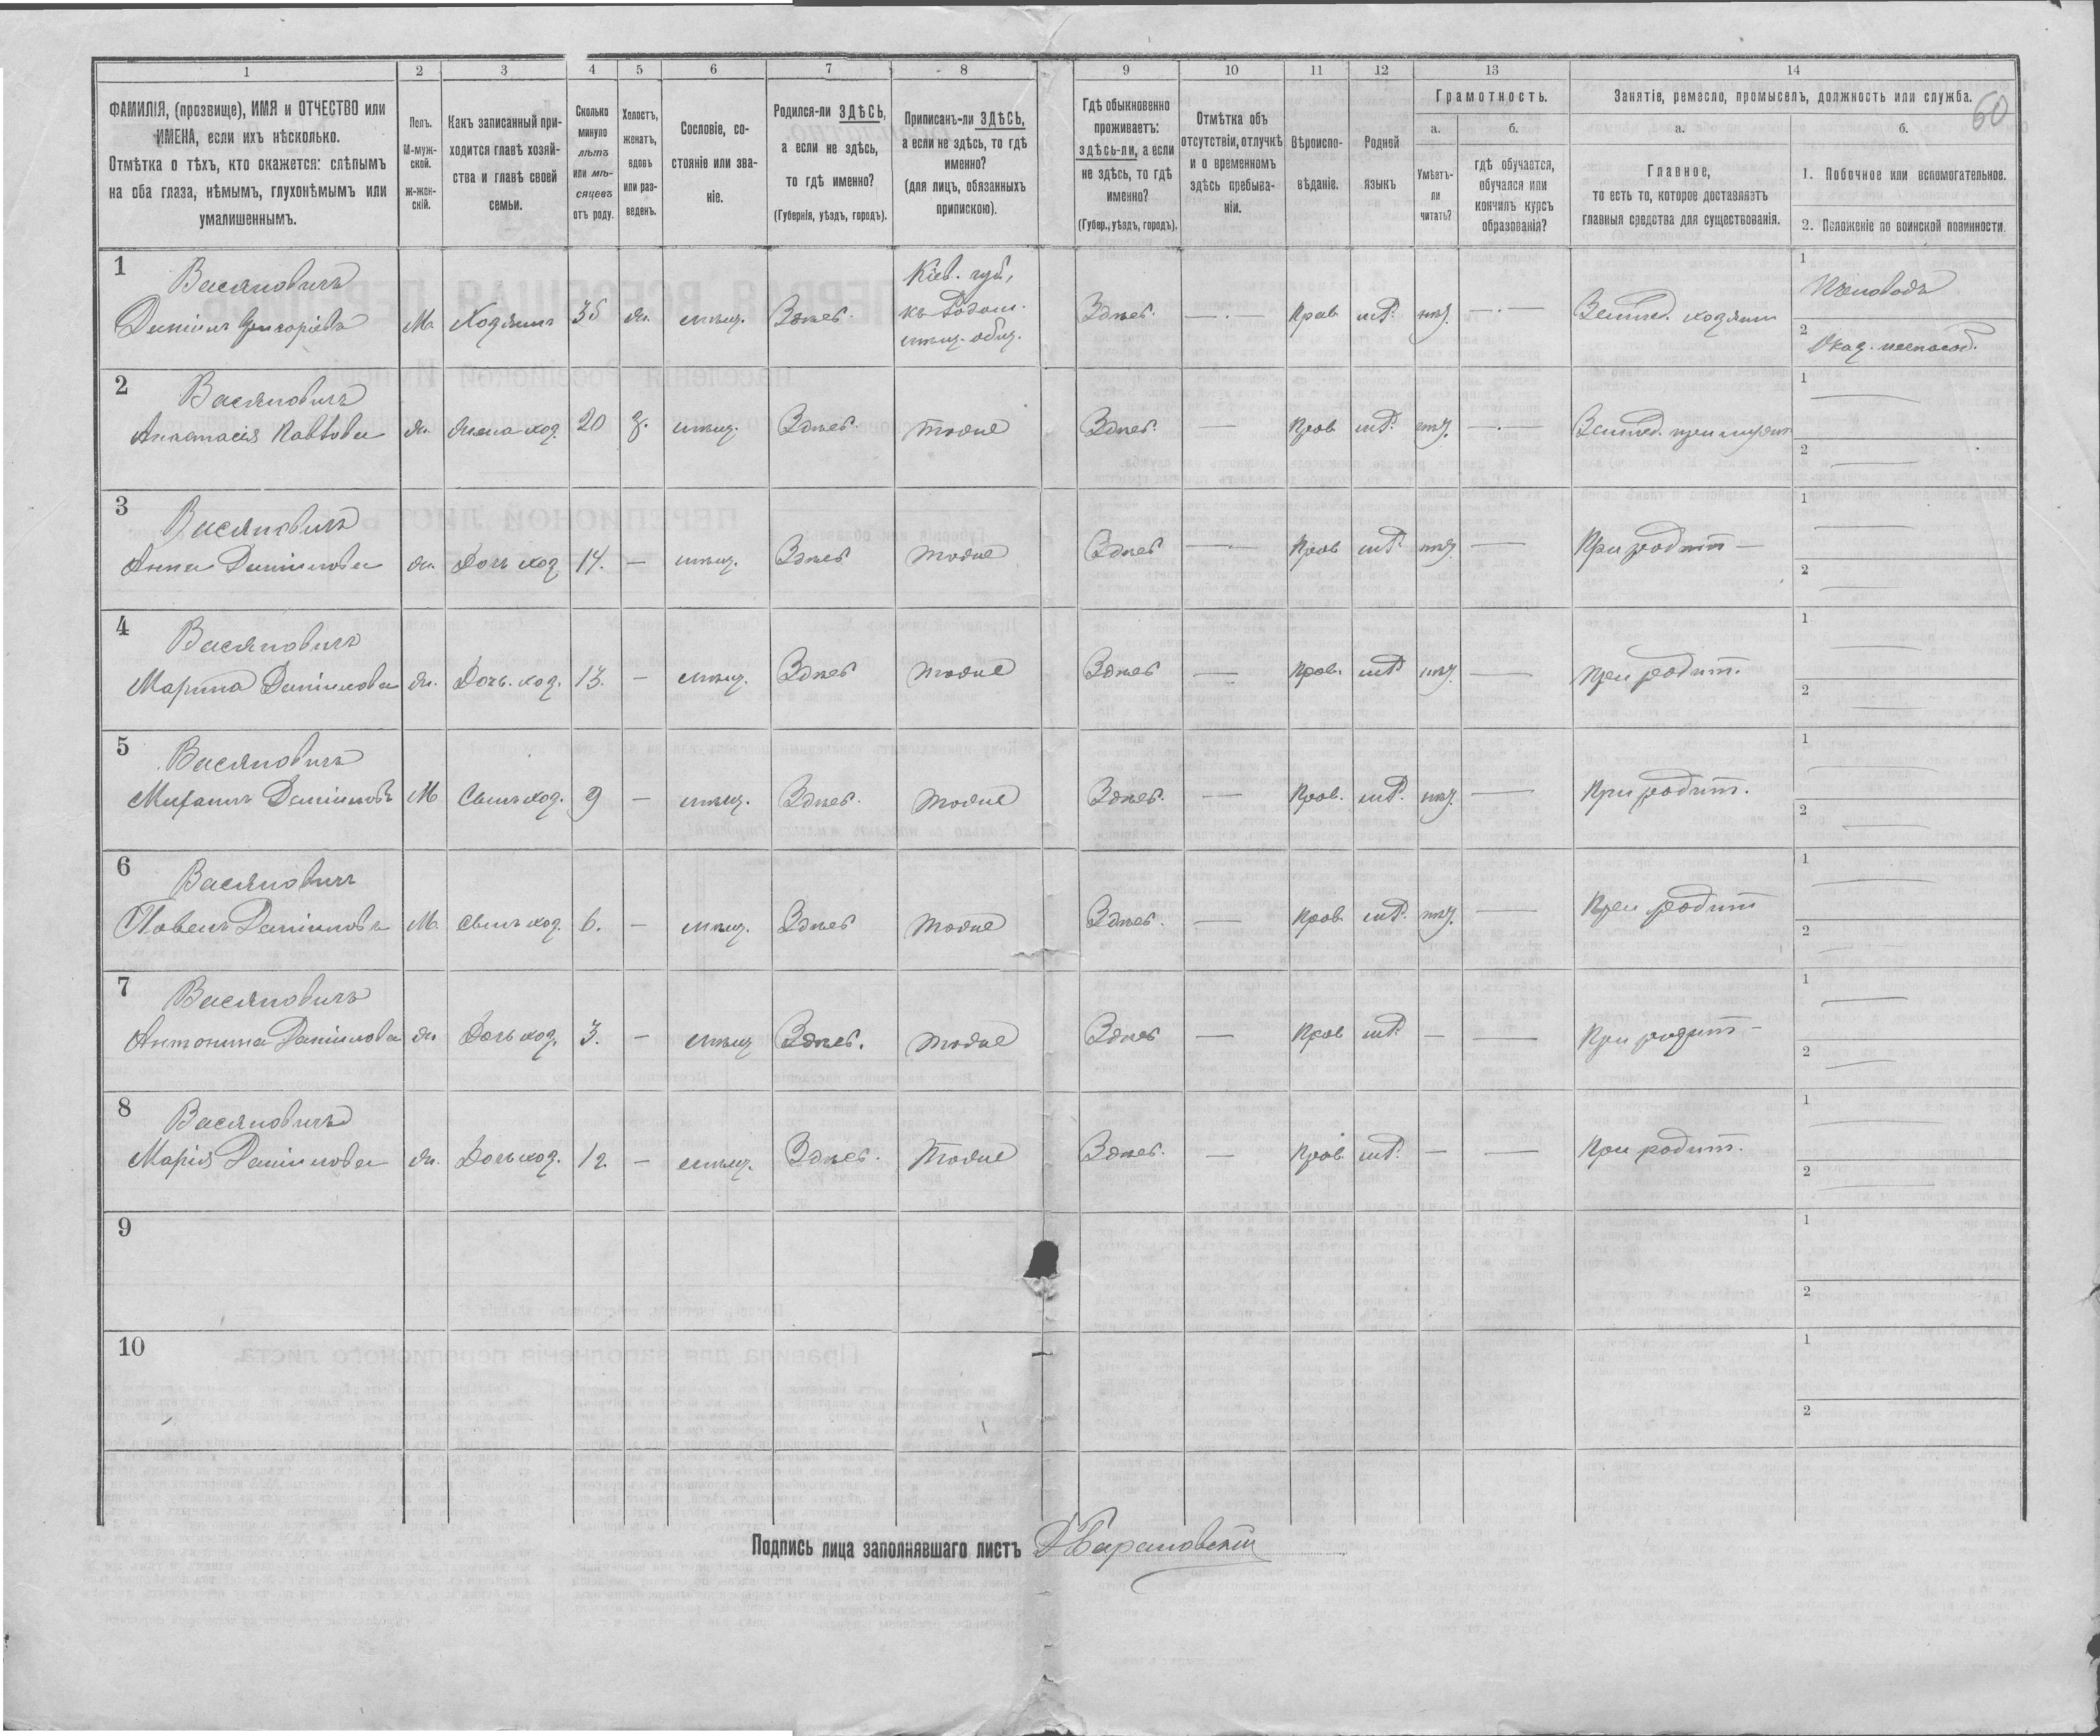 1 2 3 4 5 6 7 8 9 10 11 12 13 14
60
ФАМИЛІЯ, (прозвище), ИМЯ и ОТЧЕСТВО или
ИМЕНА, если ихъ нѣсколько.
Отмѣтка о тѣхъ, кто окажется: слѣпымъ
на оба глаза, нѣмымъ, глухонѣмымъ или
умалишеннымъ.
Полъ.
М-муж-
ской.
ж-жен-
скій.
Какъ записанный при-
ходится главѣ хозяй-
ства и главѣ своей
семьи.
Сколько
минуло
лѣтъ
или мѣ-
сяцевъ
отъ роду.
Холостъ,
женатъ,
вдовъ
или раз-
веденъ.
Сословіе, со-
стояніе или зва-
ніе.
Родился-ли ЗДѢСЬ,
а если не здѣсь,
то гдѣ именно?
(Губернія, уѣздъ, городъ).
Приписанъ-ли ЗДѢСЬ,
а если не здѣсь, то гдѣ
именно?
(для лицъ, обязанныхъ
припискою).
Гдѣ обыкновенно
проживаетъ:
здѣсь-ли, а если
не здѣсь, то гдѣ
именно?
(Губер., уѣздъ, городъ).
Отмѣтка объ
отсутствіи, отлучкѣ
и о временномъ
здѣсь пребыва-
ніи.
Вѣроиспо-
вѣданіе.
Родной
языкъ
Грамотность.
а.
Умѣетъ-
ли
читать?
б.
гдѣ обучается,
обучался или
кончилъ курсъ
образованія?
Занятіе, ремесло, промыселъ, должность или служба.
а.
Главное,
то есть то, которое доставляетъ
главныя средства для существованія.
б.
1. Побочное или вспомогательное.
2. Положеніе по воинской повинности.
1
Васяновичъ
Даніилъ Григоріевъ М. Хозяинъ 35 ж. мѣщ. Здѣсь.
Кіев. губ,
мѣщ. общ.
Здѣсь. — Прав нѣт. — Землед. хозяинъ
1 Пчеловодъ
2
2
Васяновичъ
Анастасія Павлова ж. жена хоз. 20 з. мѣщ. Здѣсь. тоже Здѣсь. — Прав нѣт. — Землед.
1 —
2 —
3
Васяновичъ
Анна Даніилова ж. Дочь хоз 14. — мѣщ. Здѣсь тоже Здѣсь — Прав нѣт — При родит —
1 —
2 —
4
Васяновичъ
Марина Даніилова ж. Дочь. хоз. 13. — мѣщ. Здѣсь тоже Здѣсь — прав. нѣт — при родит.
1 —
2 —
5
Васяновичъ
Михаилъ Даніиловъ М Сынъ хоз. 9 — мѣщ. Здѣсь. тоже Здѣсь. — Прав. нѣт — При родит.
1 —
2 —
6
Васяновичъ
Павелъ Даніиловъ М. сынъ хоз. 6. — мѣщ. Здѣсь тоже Здѣсь. — прав. нѣт. — При родит
1 —
2 —
7
Васяновичъ
Антонина Даніилова ж Дочь хоз. 3. — мѣщ Здѣсь. тоже Здѣсь — Прав — — При родит —
1 —
2 —
8
Васяновичъ
Марія Даніилова ж. Дочь хоз. — мѣщ. Здѣсь. Тоже Здѣсь. — прав. — — При родит.
1 —
2 —
9
1
2
10
1
2
Подпись лица заполнявшаго листъ Барановскій